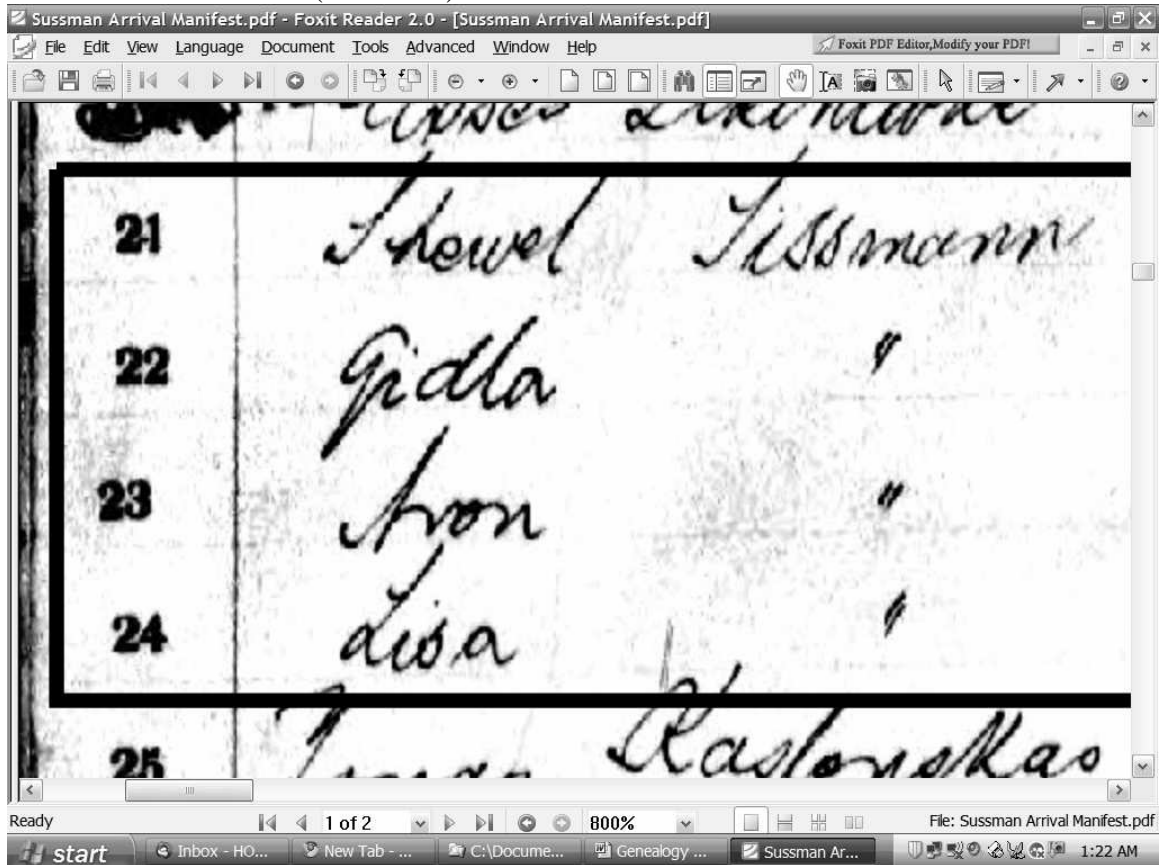 Sussman Arrival Manifest.pdf - Foxit Reader 2.0 - [Sussman Arrival Manifest.pdf]
File Edit View Language Document Tools Advanced Window Help
Foxit PDF Editor,Modify your PDF!
21 Schewel Sissmann
22 Gidla "
23 Aron "
24 Lisa "
25
Ready 1 of 2 800% File: Sussman Arrival Manifest.pdf
start Inbox - HO... New Tab - ... C:\Docume... Genealogy ... Sussman Ar... 1:22 AM